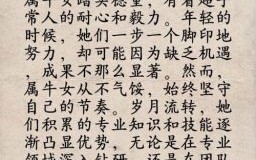 属牛女踏实稳重，有着超乎
常人的耐心和毅力。年轻的
时候，她们一步一个脚印地
努力，却可能因为缺乏机遇
，成果不那么显著。然而，
属牛女从不气馁，始终坚守
自己的节奏。岁月流转，她
们积累的专业知识和技能逐
渐凸显优势，无论是在专业
领域深入钻研，还是在团队